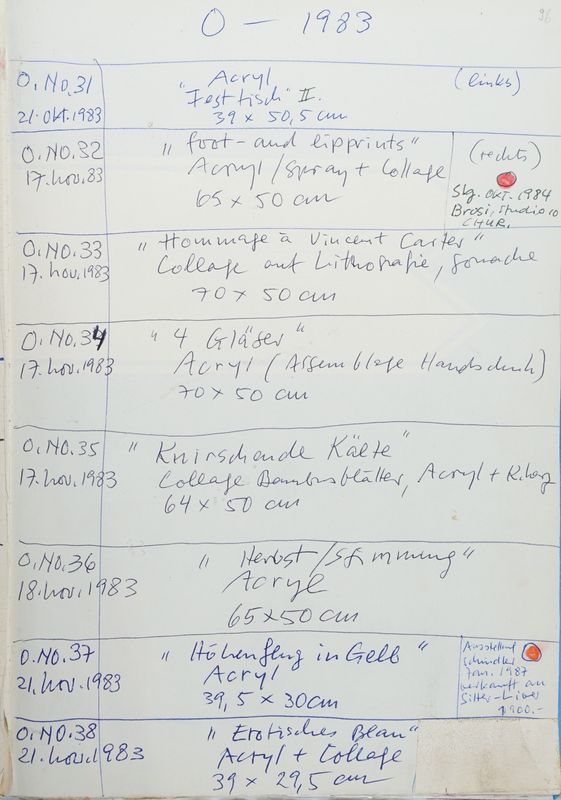 O — 1983
96
O.NO.31
21.Okt.1983
Acryl
"Festtisch" II.
39 x 50,5 cm
(links)
O.NO.32
17.nov.83
"foot-and lipprints"
Acryl/Spray + Collage
65 x 50 cm
(rechts)
Slg. OKT. 1984
Brosi, Studio 10
CHUR.
O.NO.33
17.nov.1983
"Hommage à Vincent Carter"
Collage auf Lithografie, Gouache
70 x 50 cm
O.NO.34
17.nov.1983
"4 Gläser"
Acryl (Assemblage Handschuh)
70 x 50 cm
O.NO.35
17.nov.1983
"Knirschende Kälte"
Collage Bambusblätter, Acryl + K.harz
64 x 50 cm
O.NO.36
18.nov.1983
"Herbst/Stimmung"
Acryl
65x50 cm
O.NO.37
21.nov.1983
"Höhenflug in Gelb"
Acryl
39,5 x 30cm
Ausstellung
Schindler
Jan. 1987
verkauft an
1900.-
O.NO.38
21.nov.1983
"Erotisches Blau"
Acryl + Collage
39 x 29,5 cm